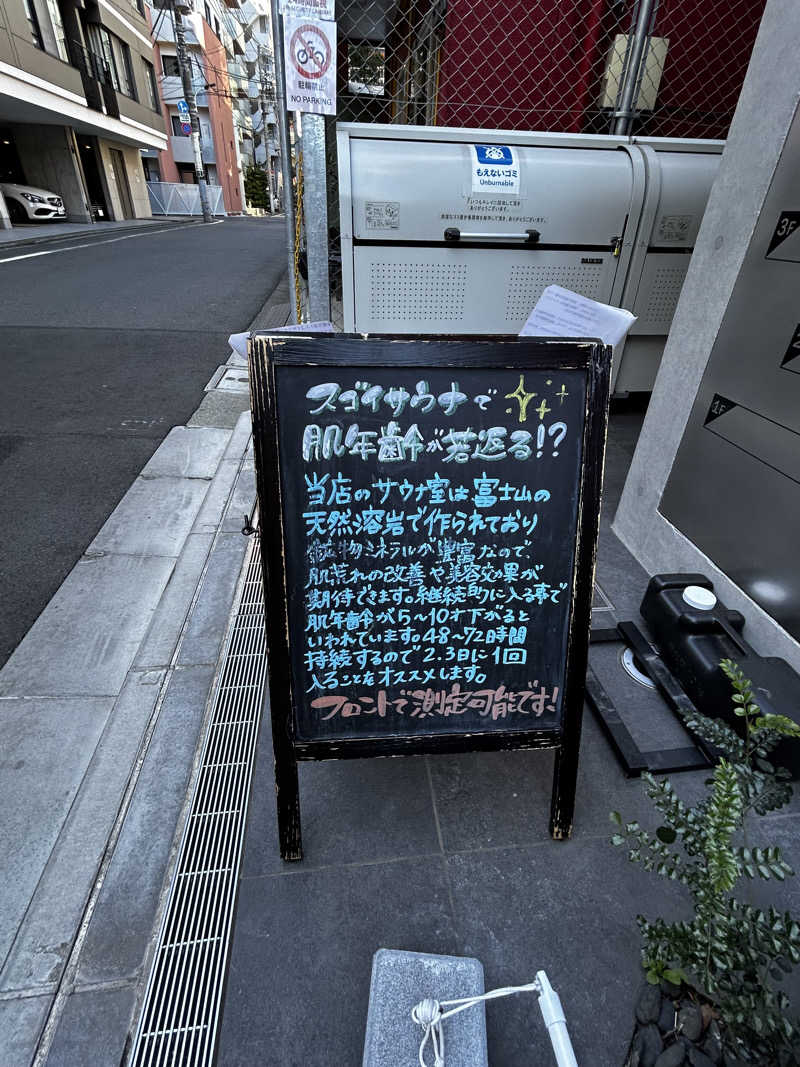 駐輪禁止
NO PARKING
もえないゴミ
Unburnable
いつもゴミの分別
ありがとうございます。
DAIKEN
3F
2
1F
スゴイサウナで
肌年齢が若返る!?
当店のサウナ室は富士山の
天然溶岩で作られており
鉱物ミネラルが豊富なので、
肌荒れの改善や美容効果が
期待できます。継続的に入る事で
肌年齢が5〜10才下がると
いわれています。48〜72時間
持続するので2.3日に1回
入ることをオススメします。
フロントで測定可能です!